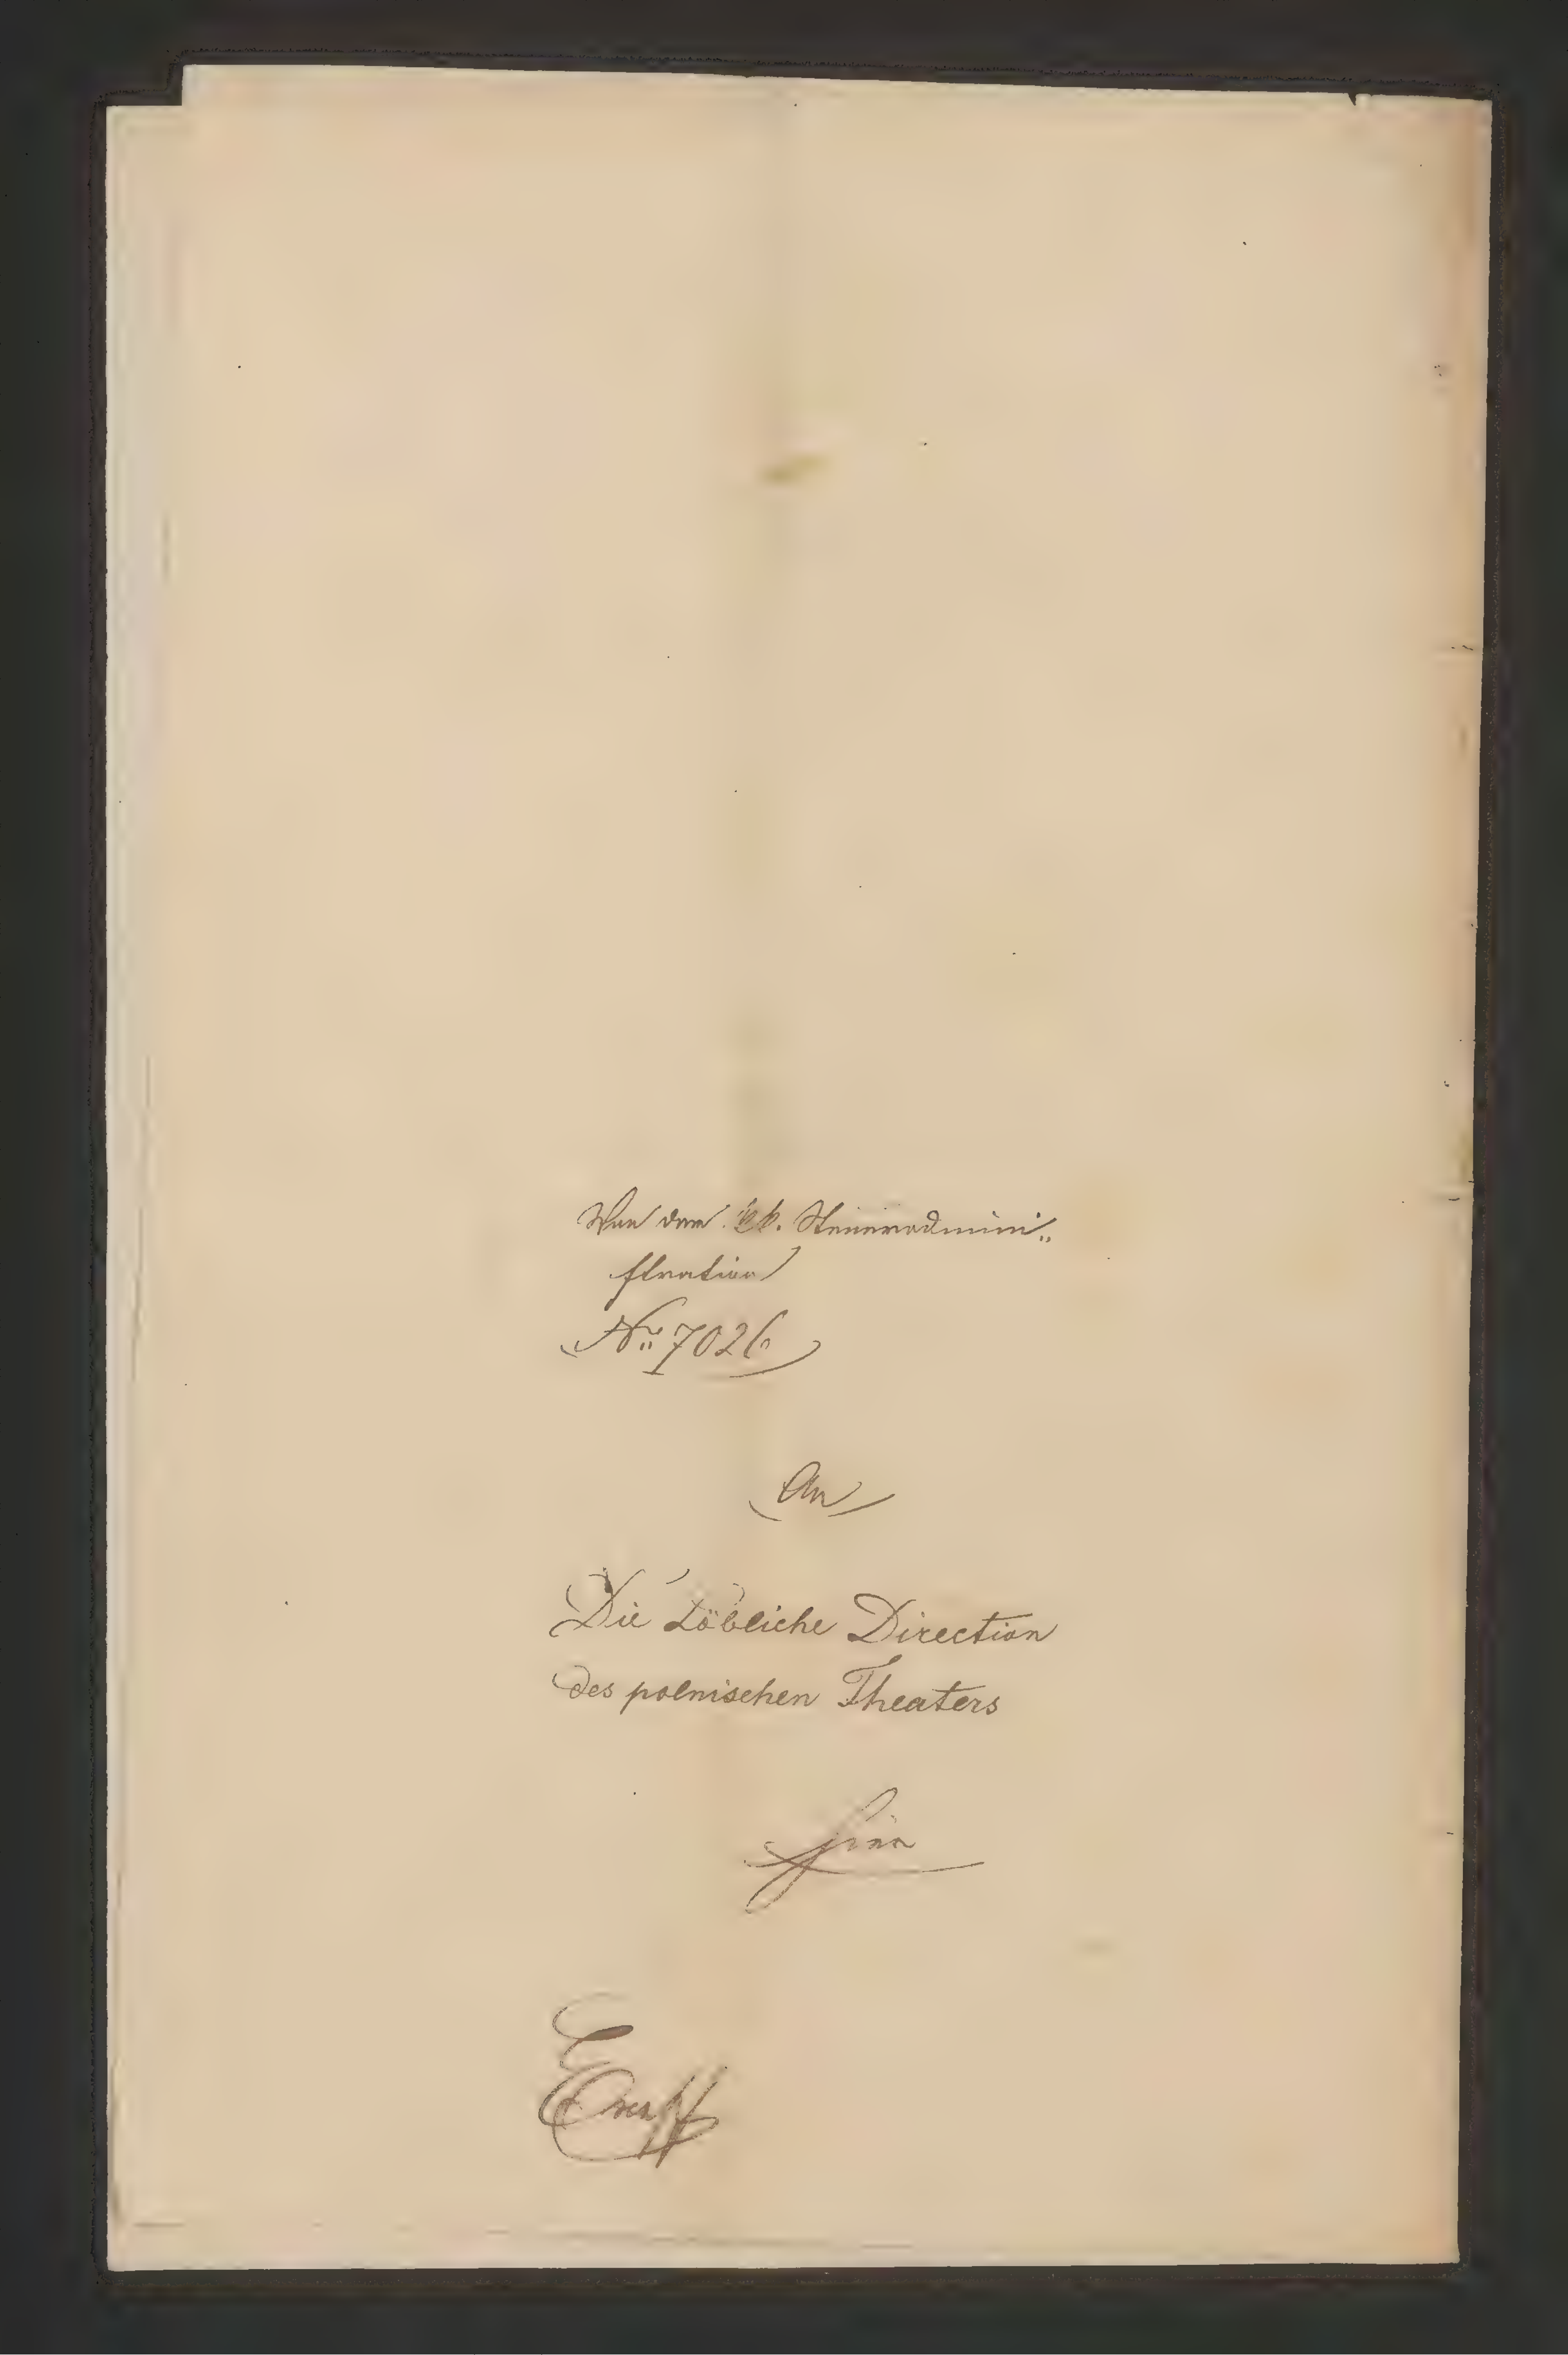 Von der k. k. Steueradmini„
stration
Nr. 7026
An
Die Löbliche Direction
des polnischen Theaters
hier